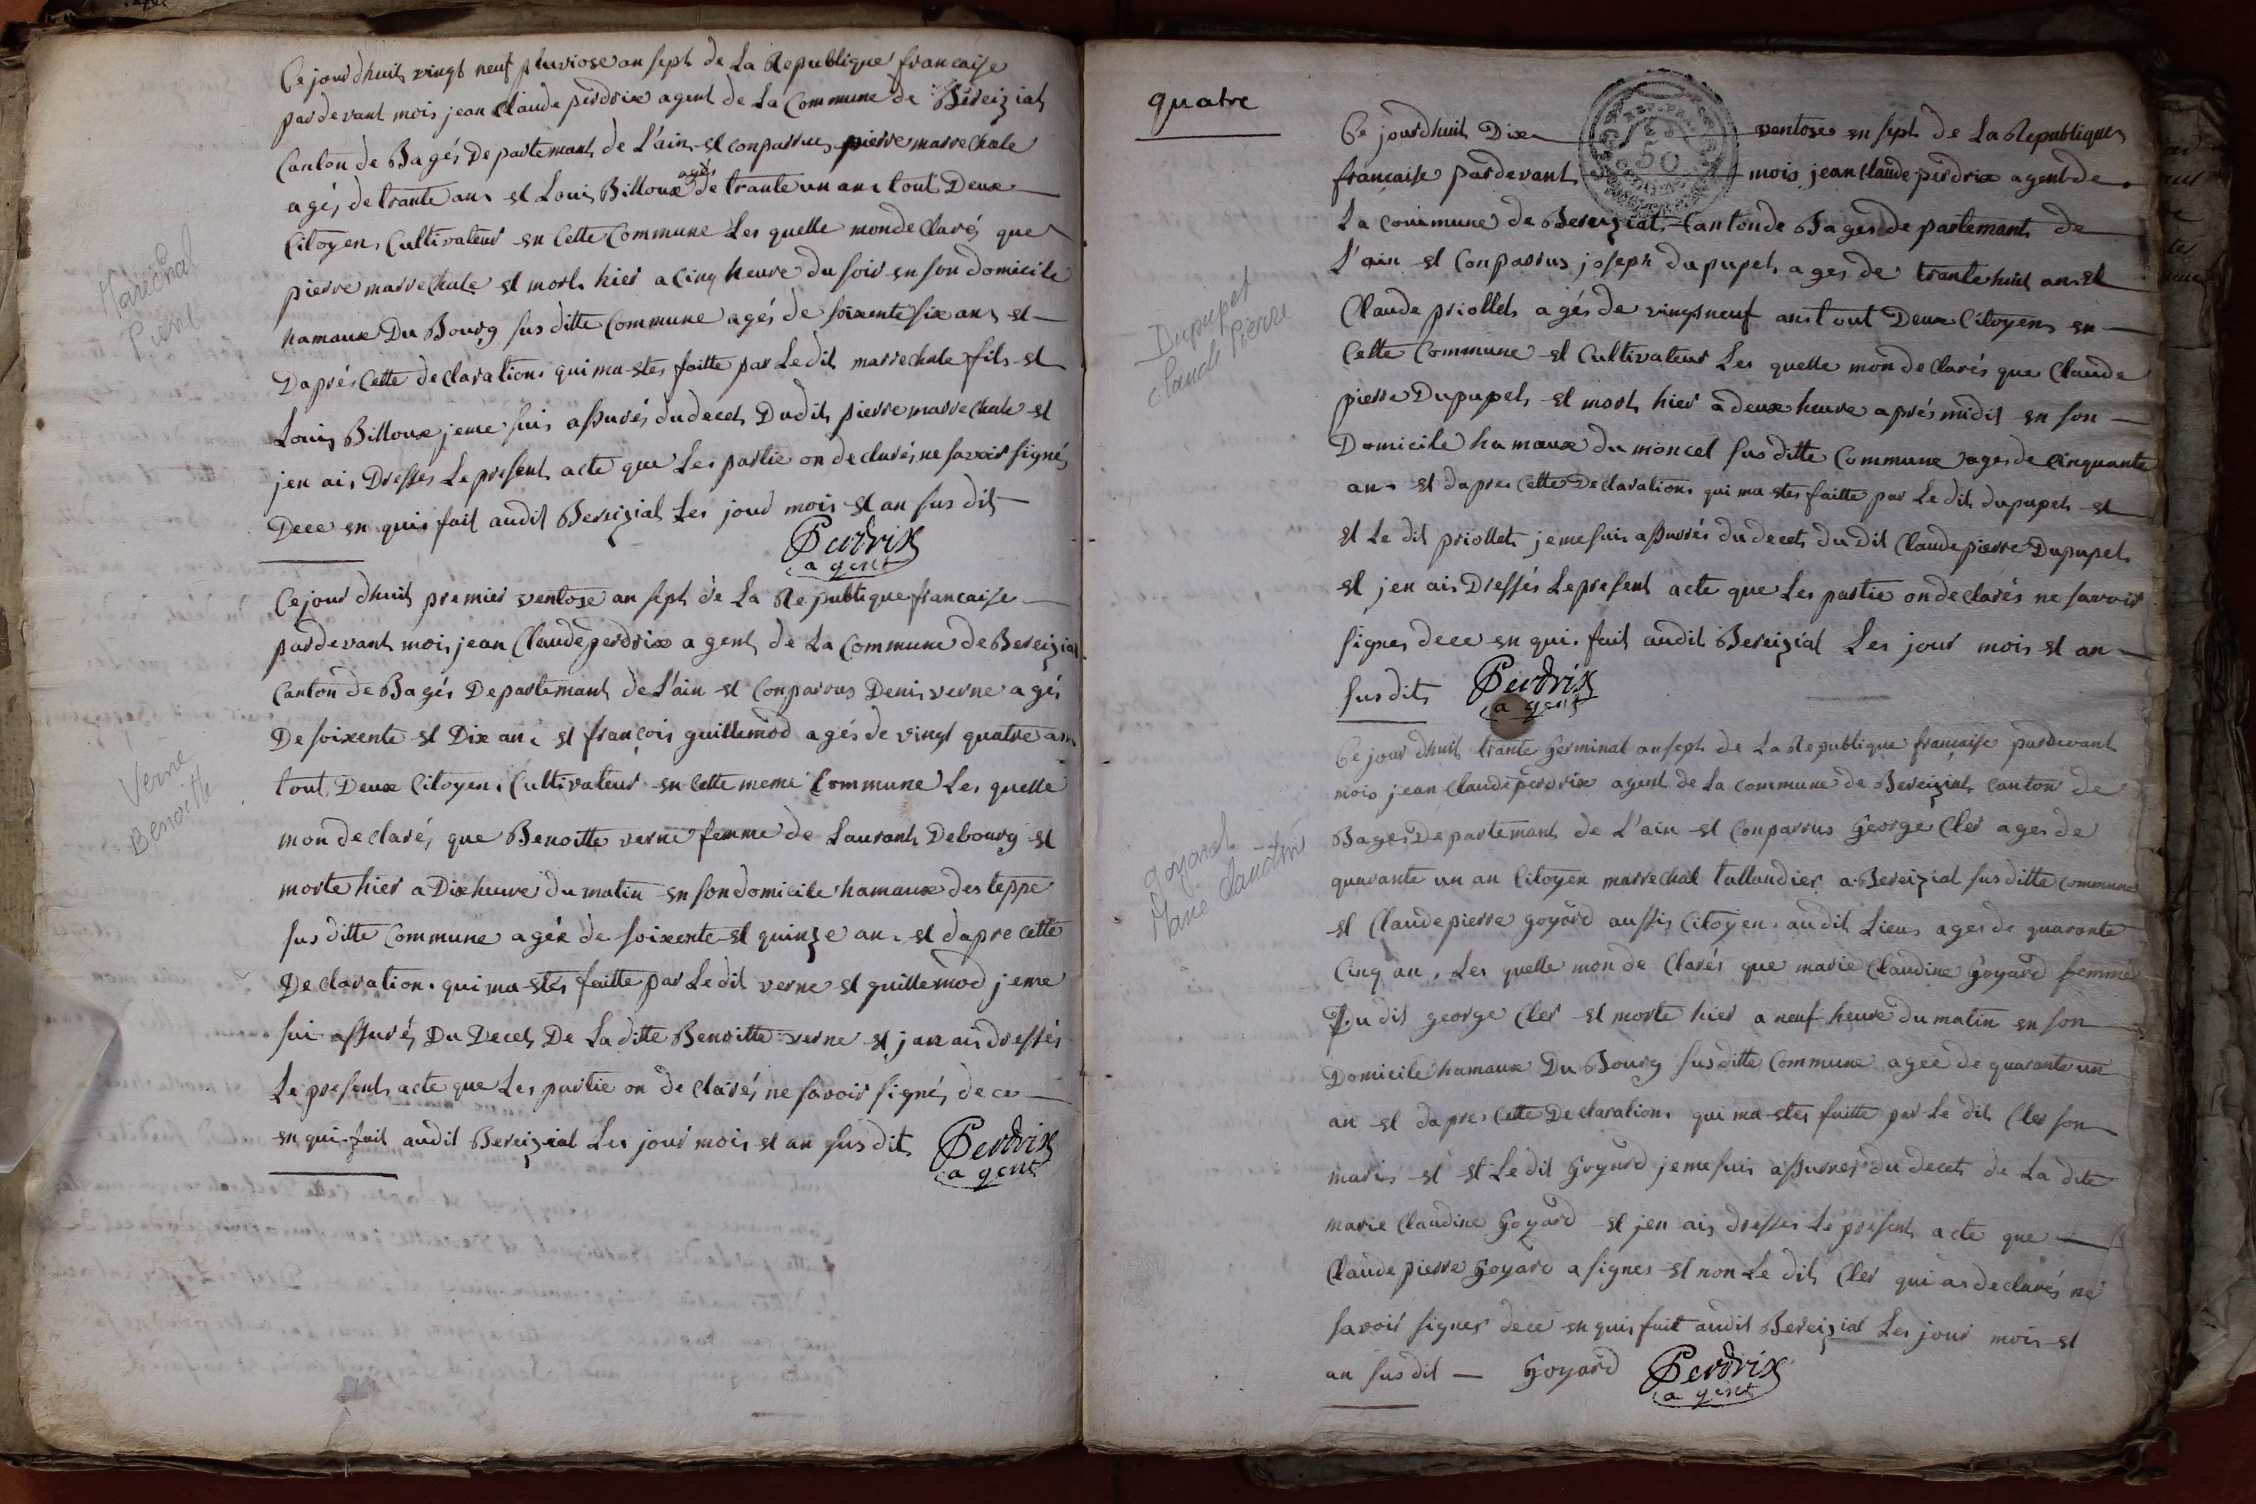 Ce jourdhuit vingt neuf pluviose an sept de La Republique francaise
pardevant mois jean Claude perdrix agent de La Commune de Béreizial
Canton de Bagés Departemant de L'ain et conparrus pierre marrechale
agés de trante ans et Louis Billoux agé de trante un ans tout Deux
Citoyens Cultivateur en Cette Commune Les quelle mon de Clarés que
pierre marrechale et mort hier a Cinq heure du soir en son domicile
hamaux Du Bourg sus ditte Commune agés de soixente six ans et
Daprés Cette declarations qui ma etes faitte par Le dit marrechale fils et
Louis Billoux je me suis assurés du decet Dudit pierre marrechale et
jen ais Dresses Le present acte que Les partie on declarés ne savoir signé
Dece en quis fait audit Bereizial Les jour mois et an sus dit
Perdrix
agent
Maréchal
Pierre
Ce jour dhuit premier ventose an sept de La Republique francaise
pardevant mois jean Claude perdrix agent de La Commune de Bereizial
Canton de Bagés Departemant de L'ain et Conparrus Denis verne agés
De soixente et Dix ans et françois guillemod agés de vingt quatre ans
tout Deux Citoyens Cultivateur en Cette meme Commune Les quelle
mon de claré, que Benoitte verne femme de Laurant Debourg et
morte hier a Dix heure du matin en son domicile hamaux des teppe
sus ditte Commune agée de soixente et quinze ans et dapre cette
Declaration qui ma etés faitte par Le dit verne et guillemod je me
sui assurés Du Decet De La ditte Benoitte verne et jan ais dressés
Le present acte que Les partie on de clarés ne savoir signés de ce
en quis fait audit Bereizial Les jour mois et an sus dit
Perdrix
agent
Verne
Benoitte
quatre
REP. FRA.
50
Ce jourdhuit Dix ventose en sept de La Republique
française pardevant mois jean Claude perdrix agent de
La Commune de Bereizial Canton de Bages departemant de
L'ain et Conparrus joseph dupupet ages de trante huit ans et
Claude priollet agés de vingt neuf ans tout Deux Citoyens en
Cette Commune et Cultivateur Les quelle mon de Clarés que Claude
pierre Dupupet et mort hier a deux heure aprés midit en son
Domicile hamaux du moncel sus ditte Commune ages de cinquante
ans et dapres Cette Declarations qui ma etes faitte par Le dit dupupet et
et Le dit priollet je me suis assurés du decet du dit Claude pierre Dupupet
et jen ais Dressés Le present acte que Les partie on declarés ne savoir
signes dece en quis fait audit Bereizial Les jour mois et an
sus dit Perdrix
agent
Dupupet
Claude Pierre
Ce jour dhuit trante Germinal an sept de La Republique française pardevant
mois jean Claude perdrix agent de La commune de Bereizial Canton de
Bages Departemant de L'ain et Conparrus George Cler ages de
quarante un an Citoyen marrechal tallandier a Bereizial sus ditte commune
et Claude pierre goyard aussis Citoyens audit Lieus ages de quarante
Cinq an, Les quelle mon de Clarés que marie Claudine Goyard femme
Du dit george Cler et morte hier a neuf heure du matin en son
Domicile hamaux Du Bourg sus ditte Commune agee de quarante un
an et dapres Cette Declarations qui ma etes faitte par Le dit Cler son
maris et et Le dit Goyard je me suis assurrés du decet de La dite
marie Claudine Goyard et jen ais dresses Le present acte que
Claude pierre Goyard a signes et non Le dit Cler qui as declarés ne
savoir signer dece en quis fait audit Bereizial Les jour mois et
an sus dit Goyard Perdrix
agent
Goyard
Marie Claudine